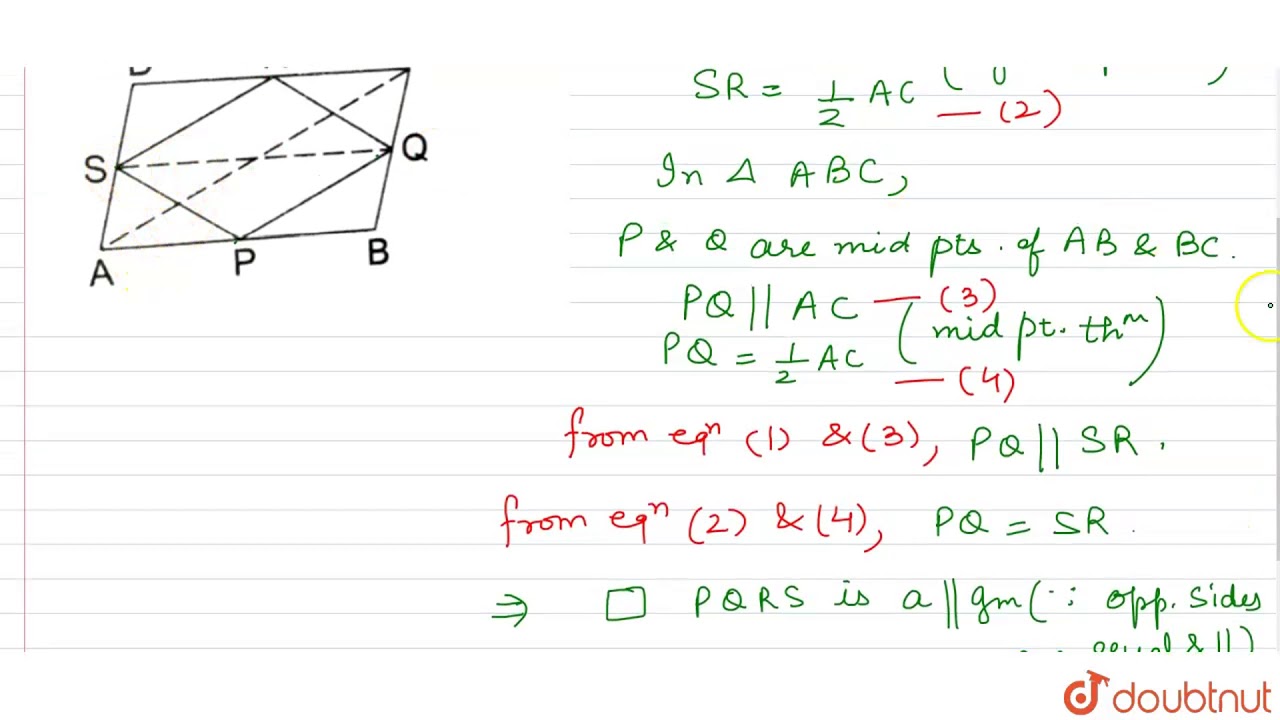 SR = 1/2 AC
— (2)
In Δ ABC,
P & Q are mid pts. of AB & BC.
PQ || AC — (3)
PQ = 1/2 AC (mid pt. thm)
— (4)
from eqn (1) & (3), PQ || SR.
from eqn (2) & (4), PQ = SR.
⇒ □ PQRS is a ||gm (∵ opp. sides
equal & ||)
S
Q
A
P
B
doubtnut